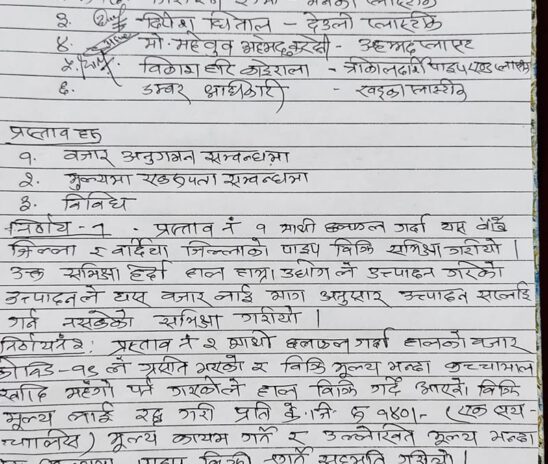 ३. दिपेश धिताल - देउली प्लास्टीक
४. मो. महेवुव अहमद कुरेशी - अहमद प्लास्ट
५. विकाश हरि कोइराला - त्रीकालदर्शी पाइप एण्ड प्लास्टिक
६. डम्बर अधिकारी - खड्का प्लास्टीक
प्रस्ताव हरु
१. वजार अनुगमन सम्वन्धमा
२. मुल्यमा एकरुपता सम्वन्धमा
३. विविध
निर्णय - १ . प्रस्ताव नं १ माथी छलफल गर्दा यस बाँके
जिल्ला र वर्दिया जिल्लाको पाइप विक्रि समिक्षा गरीयो |
उक्त समिक्षा हेर्दा हाल हाम्रा उद्योग ले उत्पादन गरेको
उत्पादनले यस वजार लाई माग अनुसार उत्पादन सप्लाई
गर्न नसकेको समिक्षा गरीयो |
निर्णय नं २: प्रस्ताव नं २ माथी छलफल गर्दा हालको वजार
कोभिड-१९ ले ग्रसित भएको र विक्रि मूल्य भन्दा कच्चामाल
खरिद महँगो पर्न गएकोले हाल विक्रि गर्दै आएको विक्रि
मूल्य लाई रद्द गरी प्रति के. जि रु १४०।- (एक सय-
चालिस) मूल्य कायम गर्ने र उल्लेखित मूल्य भन्दा
पाइप विक्री नगर्ने सहमति गरियो |